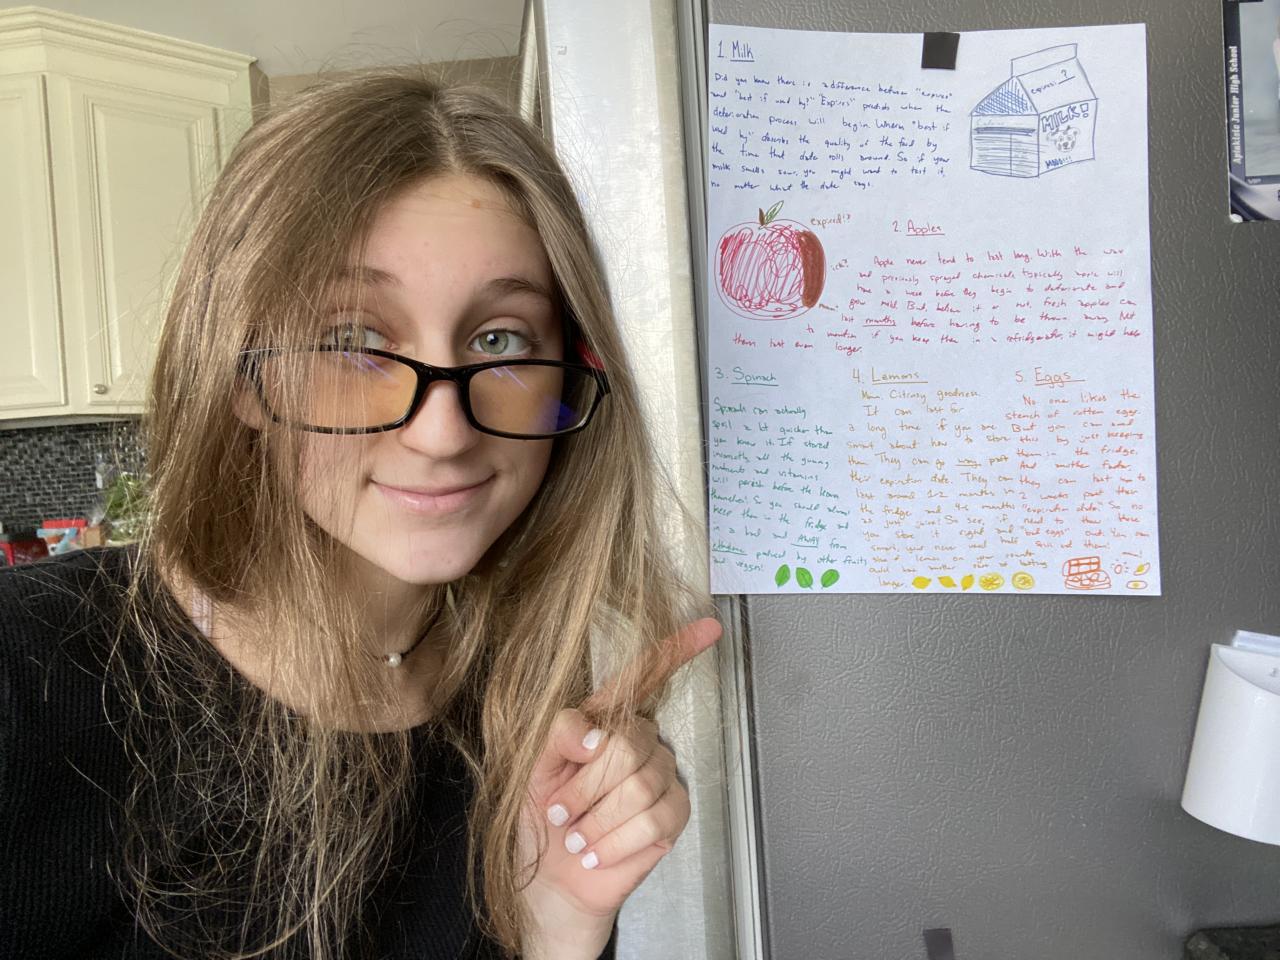 1. Milk
Did you know there is a difference between "expires"
and "best if used by?" "Expires" predicts when the
deterioration process will begin. Where "best if
used by" describes the quality of the food by
the time that date rolls around. So if your
milk smells sour, you might want to test it,
no matter what the date says.
expires: ?
MILK!
MOOO!!!
expired!?
ick?
2. Apples
Apple never tend to last long. With the wax
and previously sprayed chemicals typically apple will
have a week before they begin to deteriorate and
grow mold. But, believe it or not, fresh apples can
last months before having to be thrown away. Not
to mention if you keep them in a refrigerator, it might help
them last even longer.
3. Spinach
can actually
spoil a lot quicker than
you know it. If stored
incorrectly all the yummy
nutrients and vitamins
will perish before the leaves
themselves! So you should always
keep them in the fridge and
in a bowl and AWAY from
ethylene produced by other fruits
and veggies!
4. Lemons
Mmm. Citrusy goodness.
It can last for
a long time if you are
smart about how to store
them. They can go way past
their expiration date. They can
last around 1-2 months in
the fridge and 4-6 months
as just juice! So see, if
you store it right and
smart, your never used half
slice of lemon on your counter
could have another month of lasting
longer.
5. Eggs
No one likes the
stench of rotten eggs.
But you can avoid
this by just keeping
them in the fridge.
And another factor,
they can last up to
2 weeks past their
"expiration date." So no
need to throw those
"bad eggs" out. You can
still them!
Apinktole Junior High School